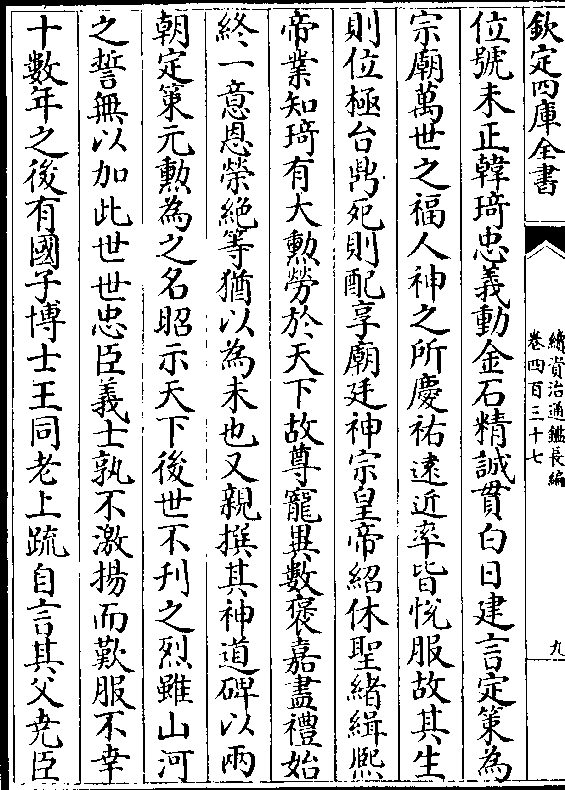 欽定四庫全書
續資治通鑑長編
卷四百三十七
九
位號未正韓琦忠義動金石精誠貫白日建言定策為
宗廟萬世之福人神之所慶祐遠近率皆悅服故其生
則位極台鼎死則配享廟廷神宗皇帝紹休聖緒緝熙
帝業知琦有大勲勞於天下故尊寵異數褒嘉盡禮始
終一意恩榮絶等猶以為未也又親撰其神道碑以兩
朝定策元勲為之名昭示天下後世不刊之烈雖山河
之誓無以加此世世忠臣義士孰不激揚而歎服不幸
十數年之後有國子博士王同老上疏自言其父堯臣